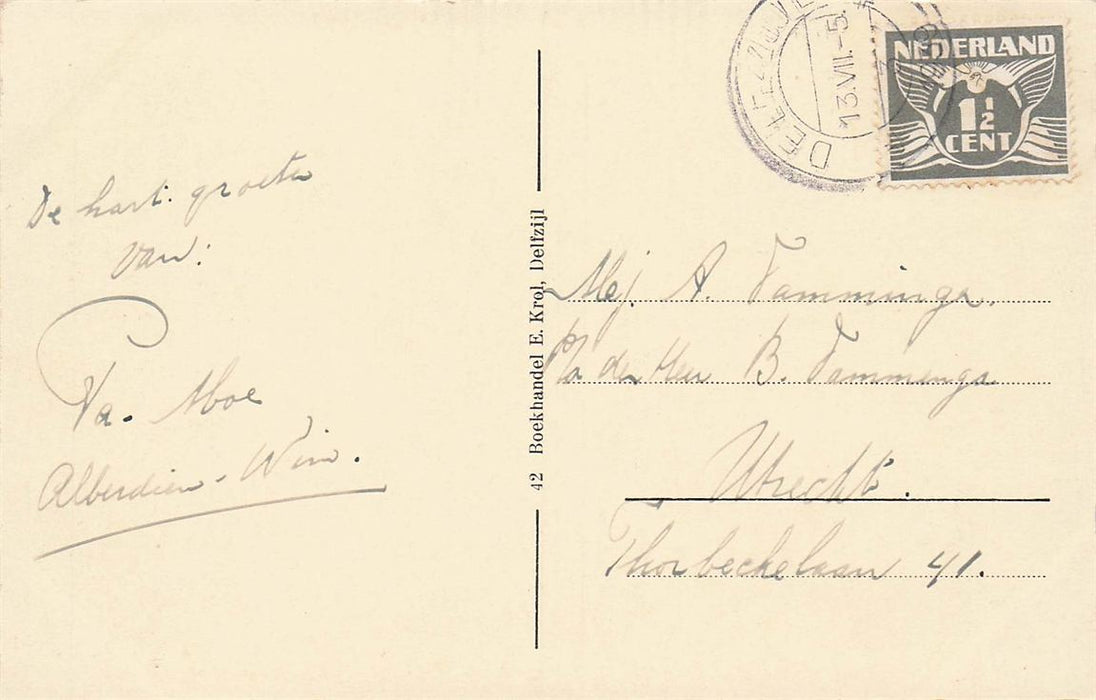 De hart. groeten
van:
Pa. Moe
Alberdien - Wim.
42 Boekhandel E. Krol, Delfzijl
DELFZIJL
13.VII.-5
NEDERLAND
1½
CENT
Mej. A. Tamminga.
P/a den Heer B. Tammenga.
Utrecht.
Thorbeckelaan 41.